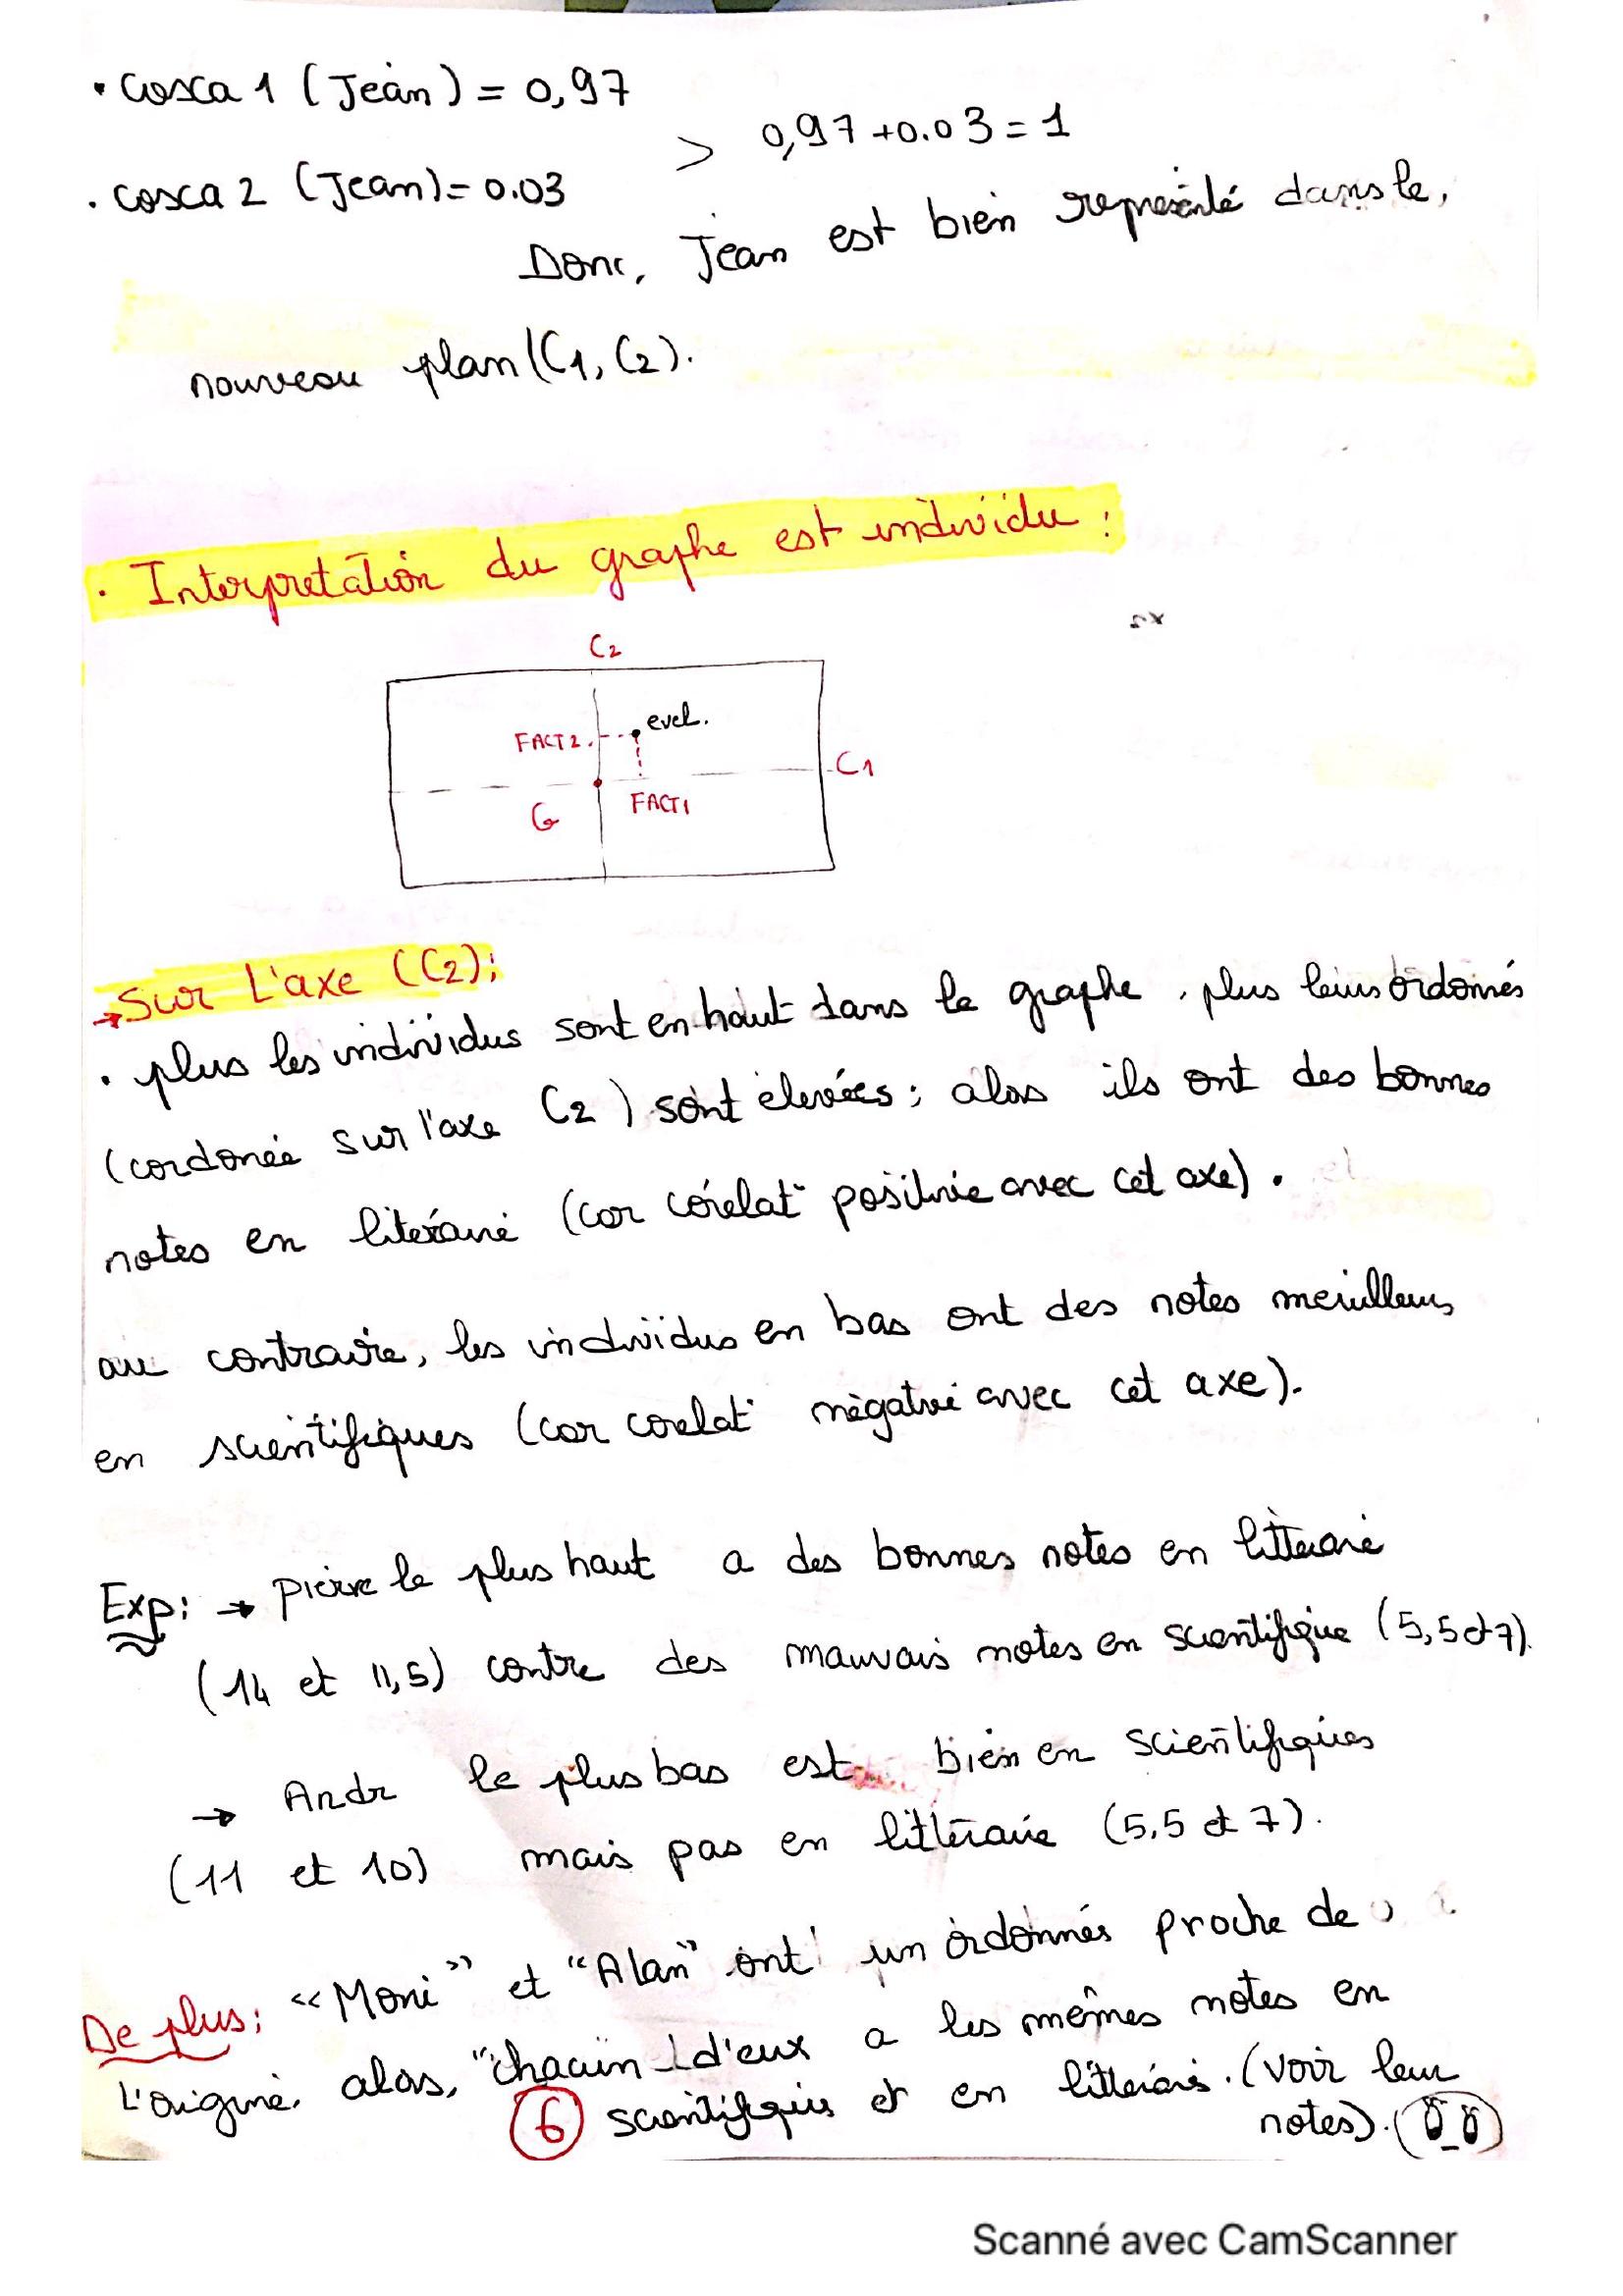 • Cosca 1 (Jean) = 0,97
> 0,97 + 0.03 = 1
. cosca 2 (Jean) = 0.03
Donc, Jean est bien représenté dans le,
nouveau plan (C1, C2).
. Interprétation du graphe est individu :
C2
evel.
FACT2.
C1
G
FACT1
→ Sur L'axe (C2);
• plus les individus sont en haut dans le graphe, plus leurs ordonnés
(cordonée sur l'axe C2) sont élevées ; alos ils ont des bonnes
notes en literaire (car corelat° positivie avec cet axe).
au contraire, les individus en bas ont des notes meuilleurs
en scientifiques (car corelat° négative avec cet axe).
Exp: → Pierre le plus haut a des bonnes notes en litteraire
(14 et 11,5) contre des mauvais notes en scientifique (5,5 et 7).
→ Andr le plus bas est bien en scientifiques
(11 et 10) mais pas en littéraire (5,5 et 7).
De plus; "Moni" et "Alan" ont un ordonnés proche de
L'origine. alos, "chacun d'eux a les mêmes notes en
6 scientifiques et en litteraire. (voir leur
notes).
Scanné avec CamScanner